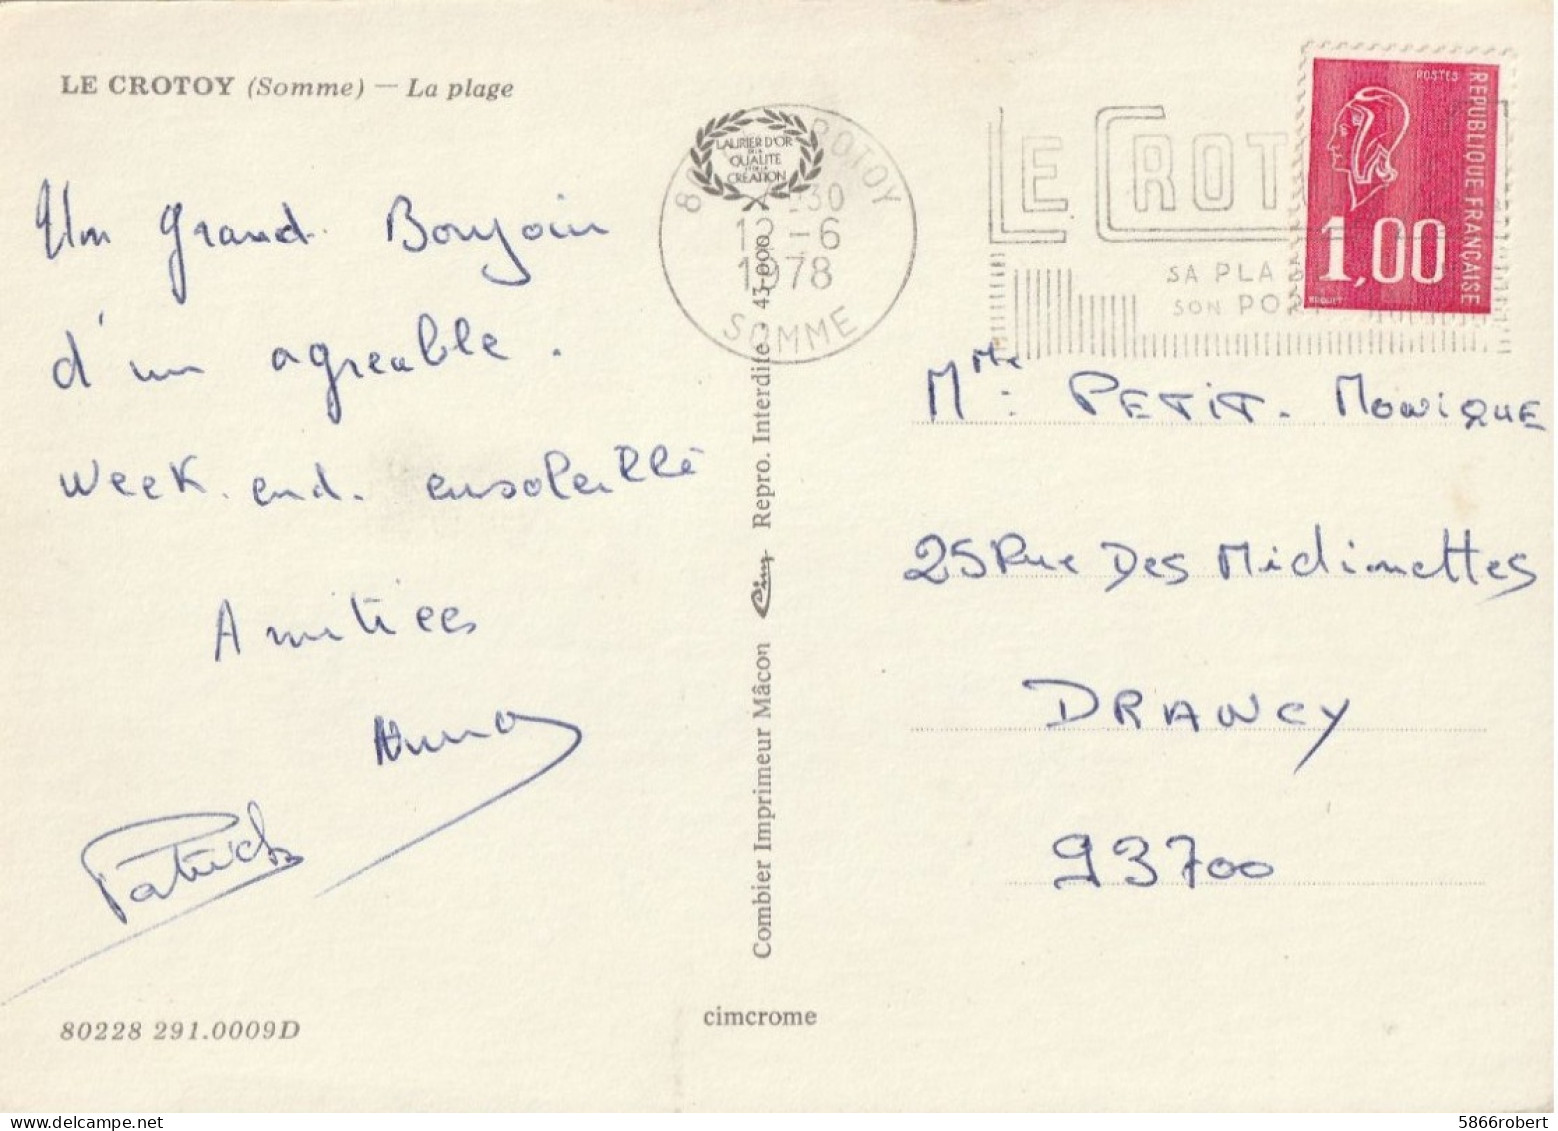 LE CROTOY (Somme) — La plage
Un grand Bonjour
d'un agreable.
week.end. ensoleillé
Amitiées
Patrick
80228 291.0009D
LAURIER D'OR
DE LA
QUALITE
ET DE LA
CREATION
80 CROTOY
30
12-6
1978
SOMME
Combier Imprimeur Mâcon Cim Repro. Interdite - 43-000
cimcrome
LE CROT
SA PLA
SON POR
POSTES
REPUBLIQUE FRANÇAISE
1,00
BEQUET
Mme: PETIT. MONIQUE
25 Rue Des Midinettes
DRANCY
93700
5866robert